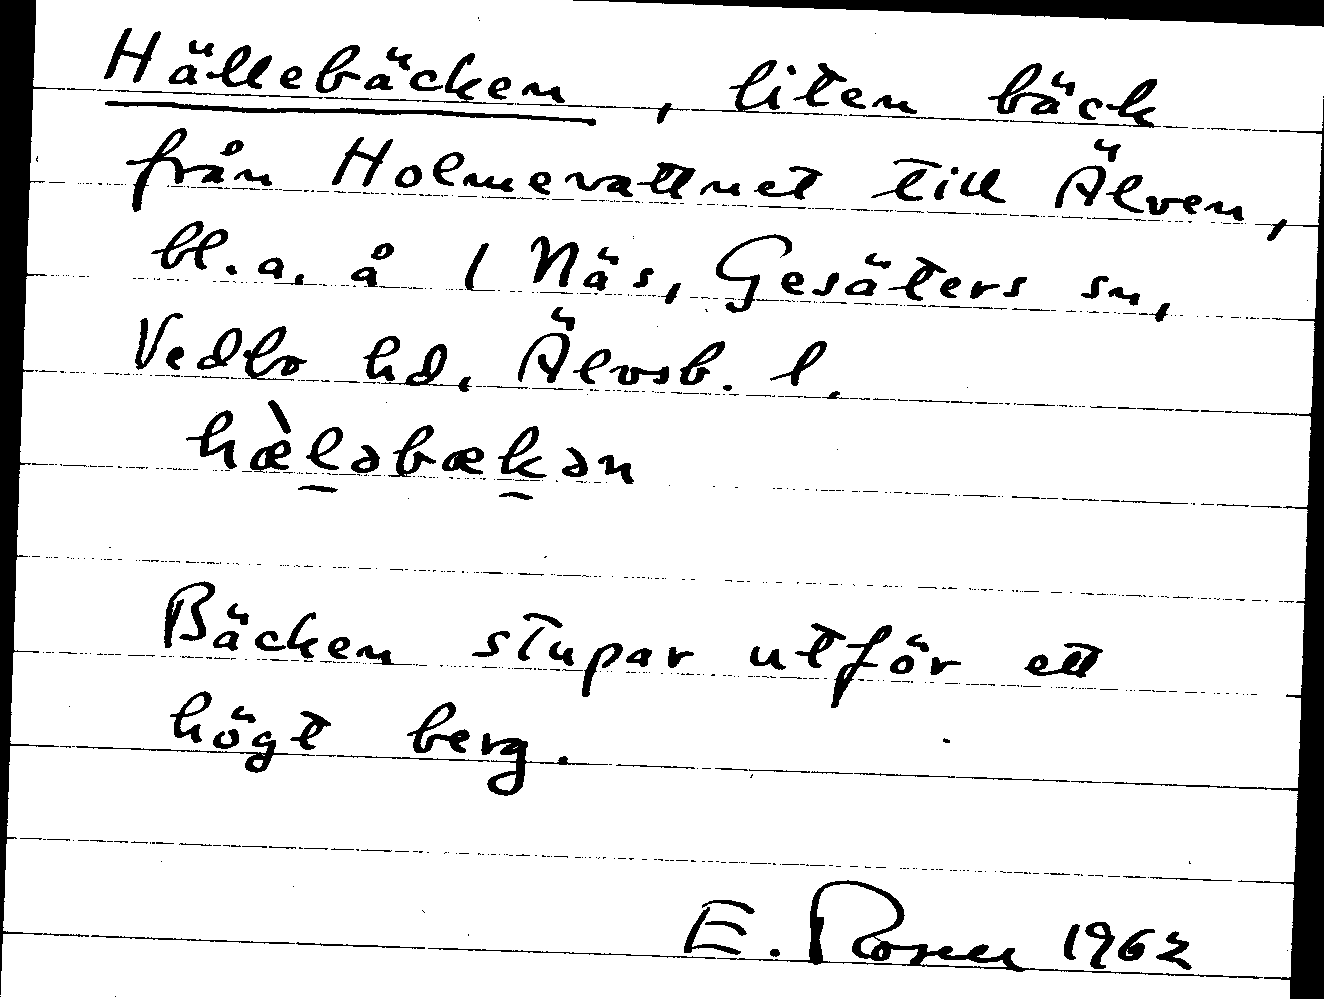 Hällebäcken, liten bäck
från Holmevattnet till Älven,
bl.a. å 1 Näs, Gesäters sn,
Vedbo hd. Älvsb. l.
hæ̀l̠əbæk̠ən
Bäcken stupar utför ett
högt berg.
E. Rosell 1962